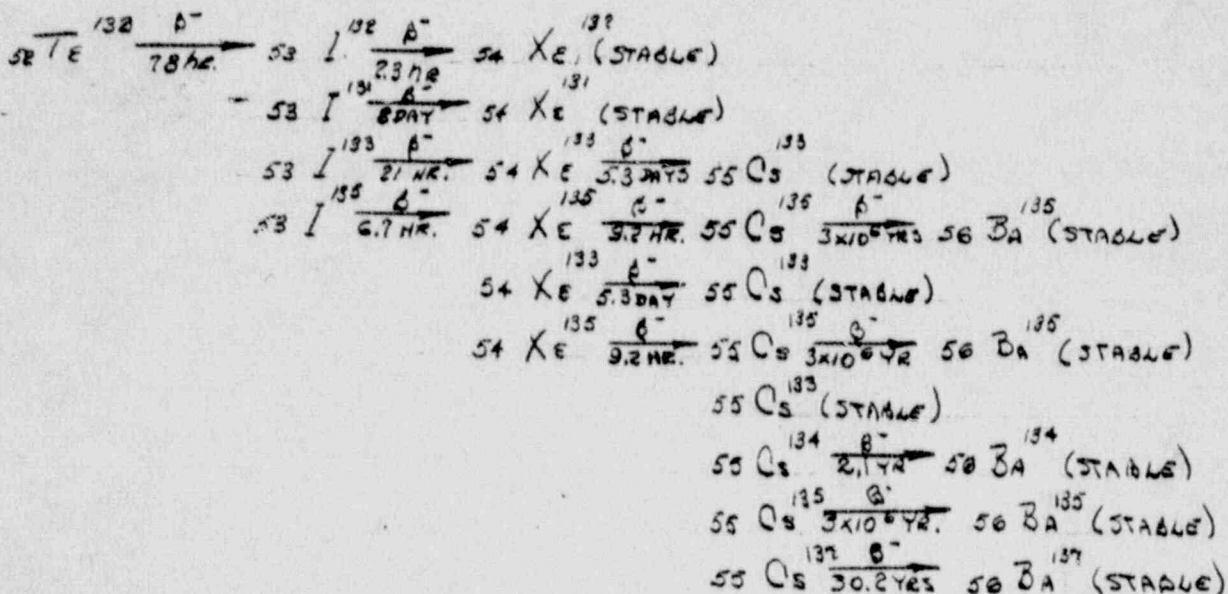 52 TE 132 β⁻ 78 hr. 53 I 132 β⁻ 2.3 hr 54 XE 132 (STABLE)
53 I 131 β⁻ 8 DAY 54 XE 131 (STABLE)
53 I 133 β⁻ 21 HR. 54 XE 133 β⁻ 5.3 DAYS 55 CS 133 (STABLE)
53 I 135 β⁻ 6.7 HR. 54 XE 135 β⁻ 9.2 HR. 55 CS 135 β⁻ 3x10⁶ YRS 56 BA 135 (STABLE)
54 XE 133 β⁻ 5.3 DAY 55 CS 133 (STABLE)
54 XE 135 β⁻ 9.2 HR. 55 CS 135 β⁻ 3x10⁶ YR 56 BA 135 (STABLE)
55 CS 133 (STABLE)
55 CS 134 β⁻ 2.1 YR 56 BA 134 (STABLE)
55 CS 135 β⁻ 3x10⁶ YR. 56 BA 135 (STABLE)
55 CS 137 β⁻ 30.2 YRS 56 BA 137 (STABLE)